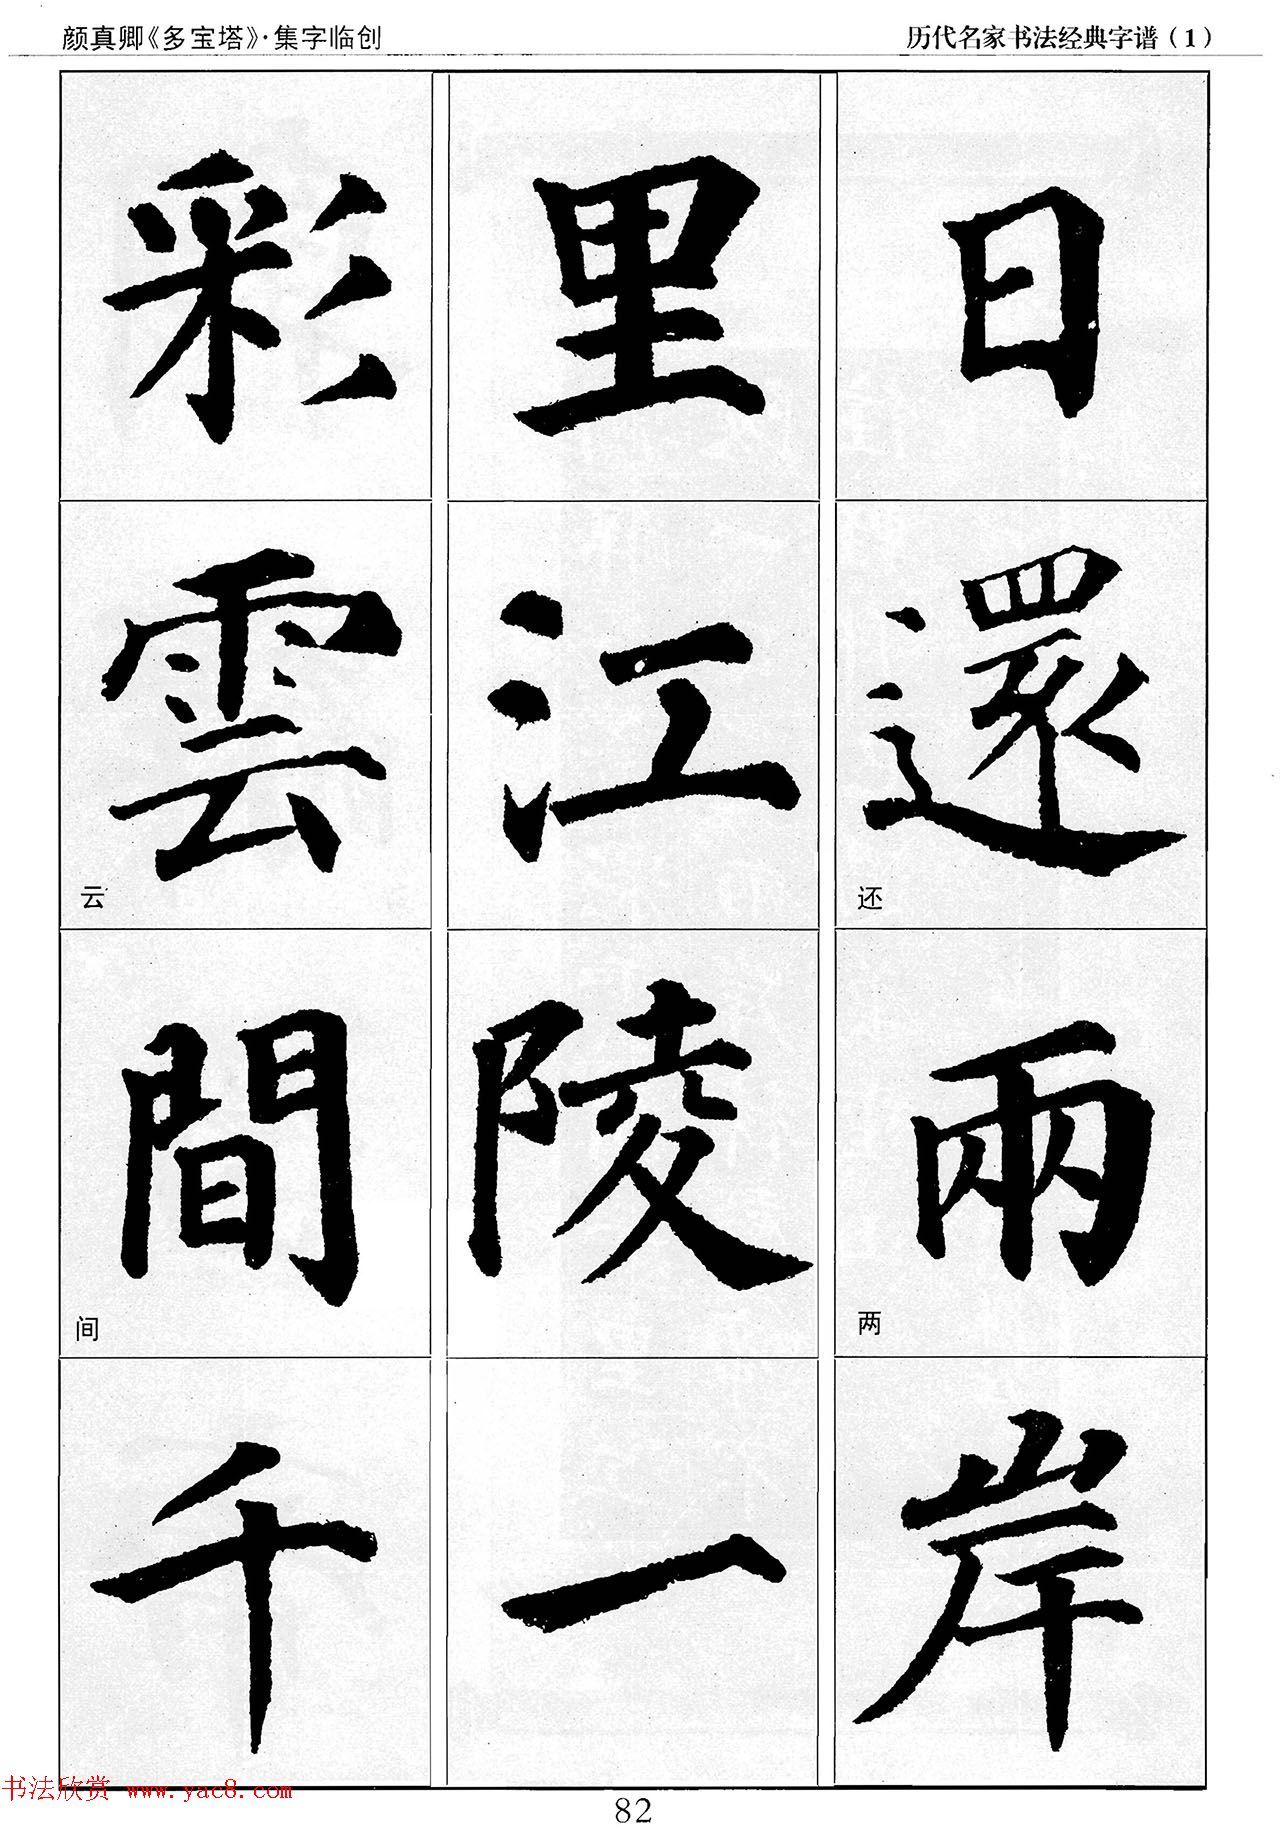 颜真卿《多宝塔》·集字临创
历代名家书法经典字谱（1）
彩雲間千
云
间
里江陵一
日還兩岸
还
两
书法欣赏 www.yac8.com
82